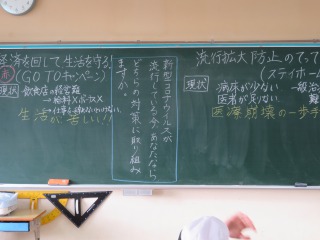 経済を回して生活を守る!
赤(GO TOキャンペーン)
現状 飲食店の経営難
→給料×ボーナス×
生活が苦しい!!
新型コロナウイルスが
流行している今、あなたなら
どちらの対策に取り組み
ますか。
流行拡大防止のてって
(ステイホーム
現状 病床が少ない
医者が足りない
医療崩壊の一歩手